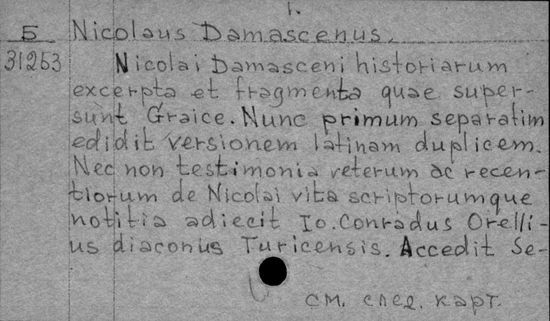 1.
Б Nicolaus Damascenus.
31253 Nicolai Damasceni historiarum
excerpta et fragmenta quae super-
sunt Graice. Nunc primum separatim
edidit versionem latinam duplicem.
Nec non testimonia veterum ac recen-
tiorum de Nicolai vita scriptorumque
notitia adiecit Io. Conradus Orelli-
us diaconus Turicensis. Accedit Se-
см. след. карт.